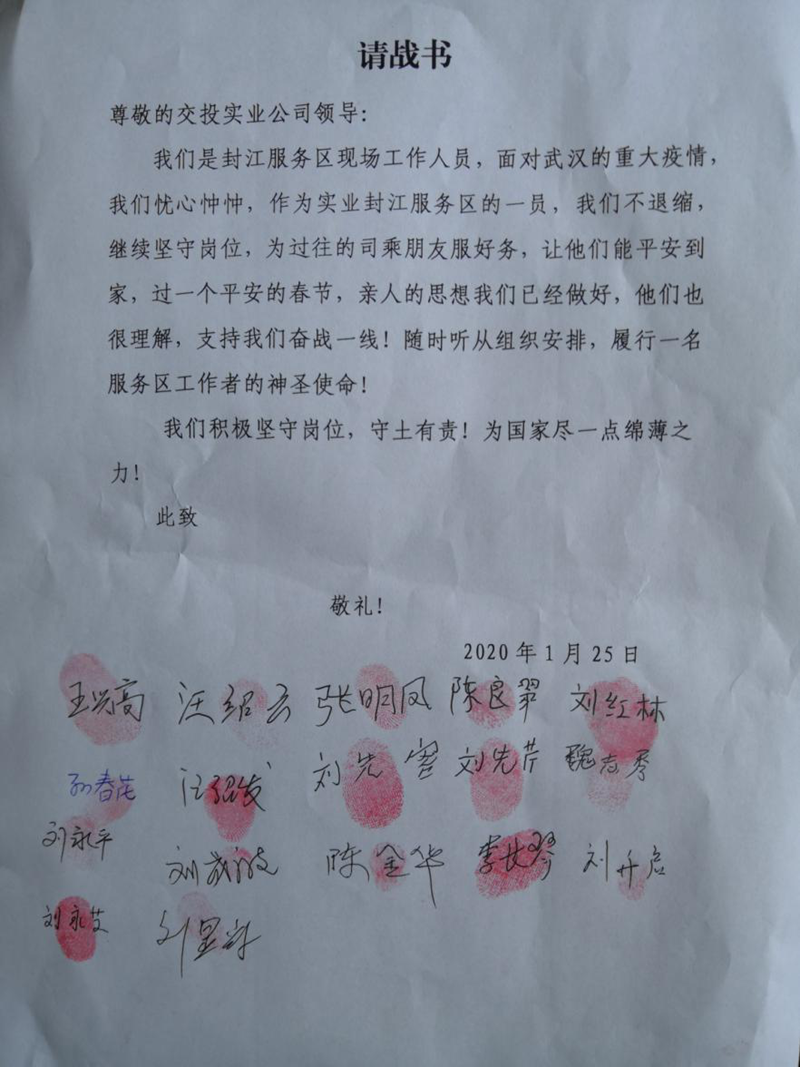 请战书
尊敬的交投实业公司领导：
我们是封江服务区现场工作人员，面对武汉的重大疫情，
我们忧心忡忡，作为实业封江服务区的一员，我们不退缩，
继续坚守岗位，为过往的司乘朋友服好务，让他们能平安到
家，过一个平安的春节，亲人的思想我们已经做好，他们也
很理解，支持我们奋战一线！随时听从组织安排，履行一名
服务区工作者的神圣使命！
我们积极坚守岗位，守土有责！为国家尽一点绵薄之
力！
此致
敬礼！
2020 年 1 月 25 日
王兴高 汪绍云 张明凤 陈良翠 刘红林
孙春花 汪绍发 刘先 刘先芹 魏志秀
刘永平 刘成 陈金华 李 琴 刘开启
刘永 刘